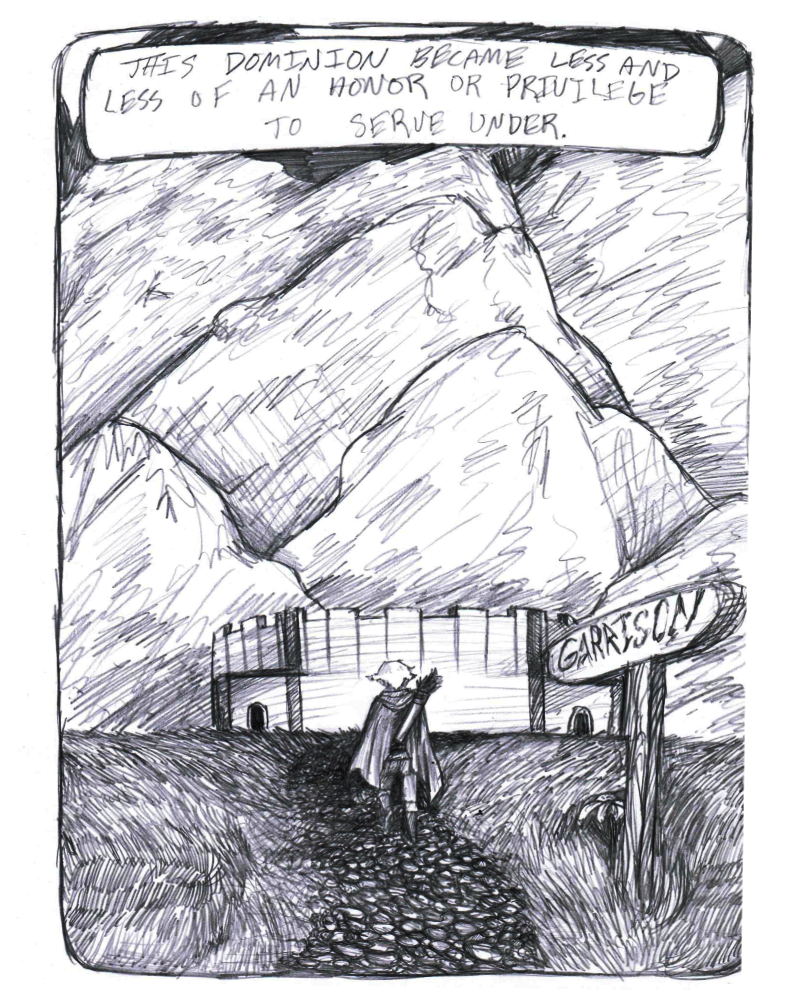 THIS DOMINION BECAME LESS AND
LESS OF AN HONOR OR PRIVILEGE
TO SERVE UNDER.
GARRISON